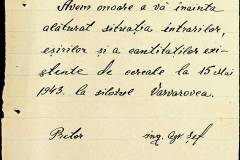 Avem onoare a vă înainta
alăturat situația intrarilor,
eșirilor și a cantităților exi-
stente de cereale la 15 Mai
1943. la silozul Varvarovca.
Pretor ing. agr. șef